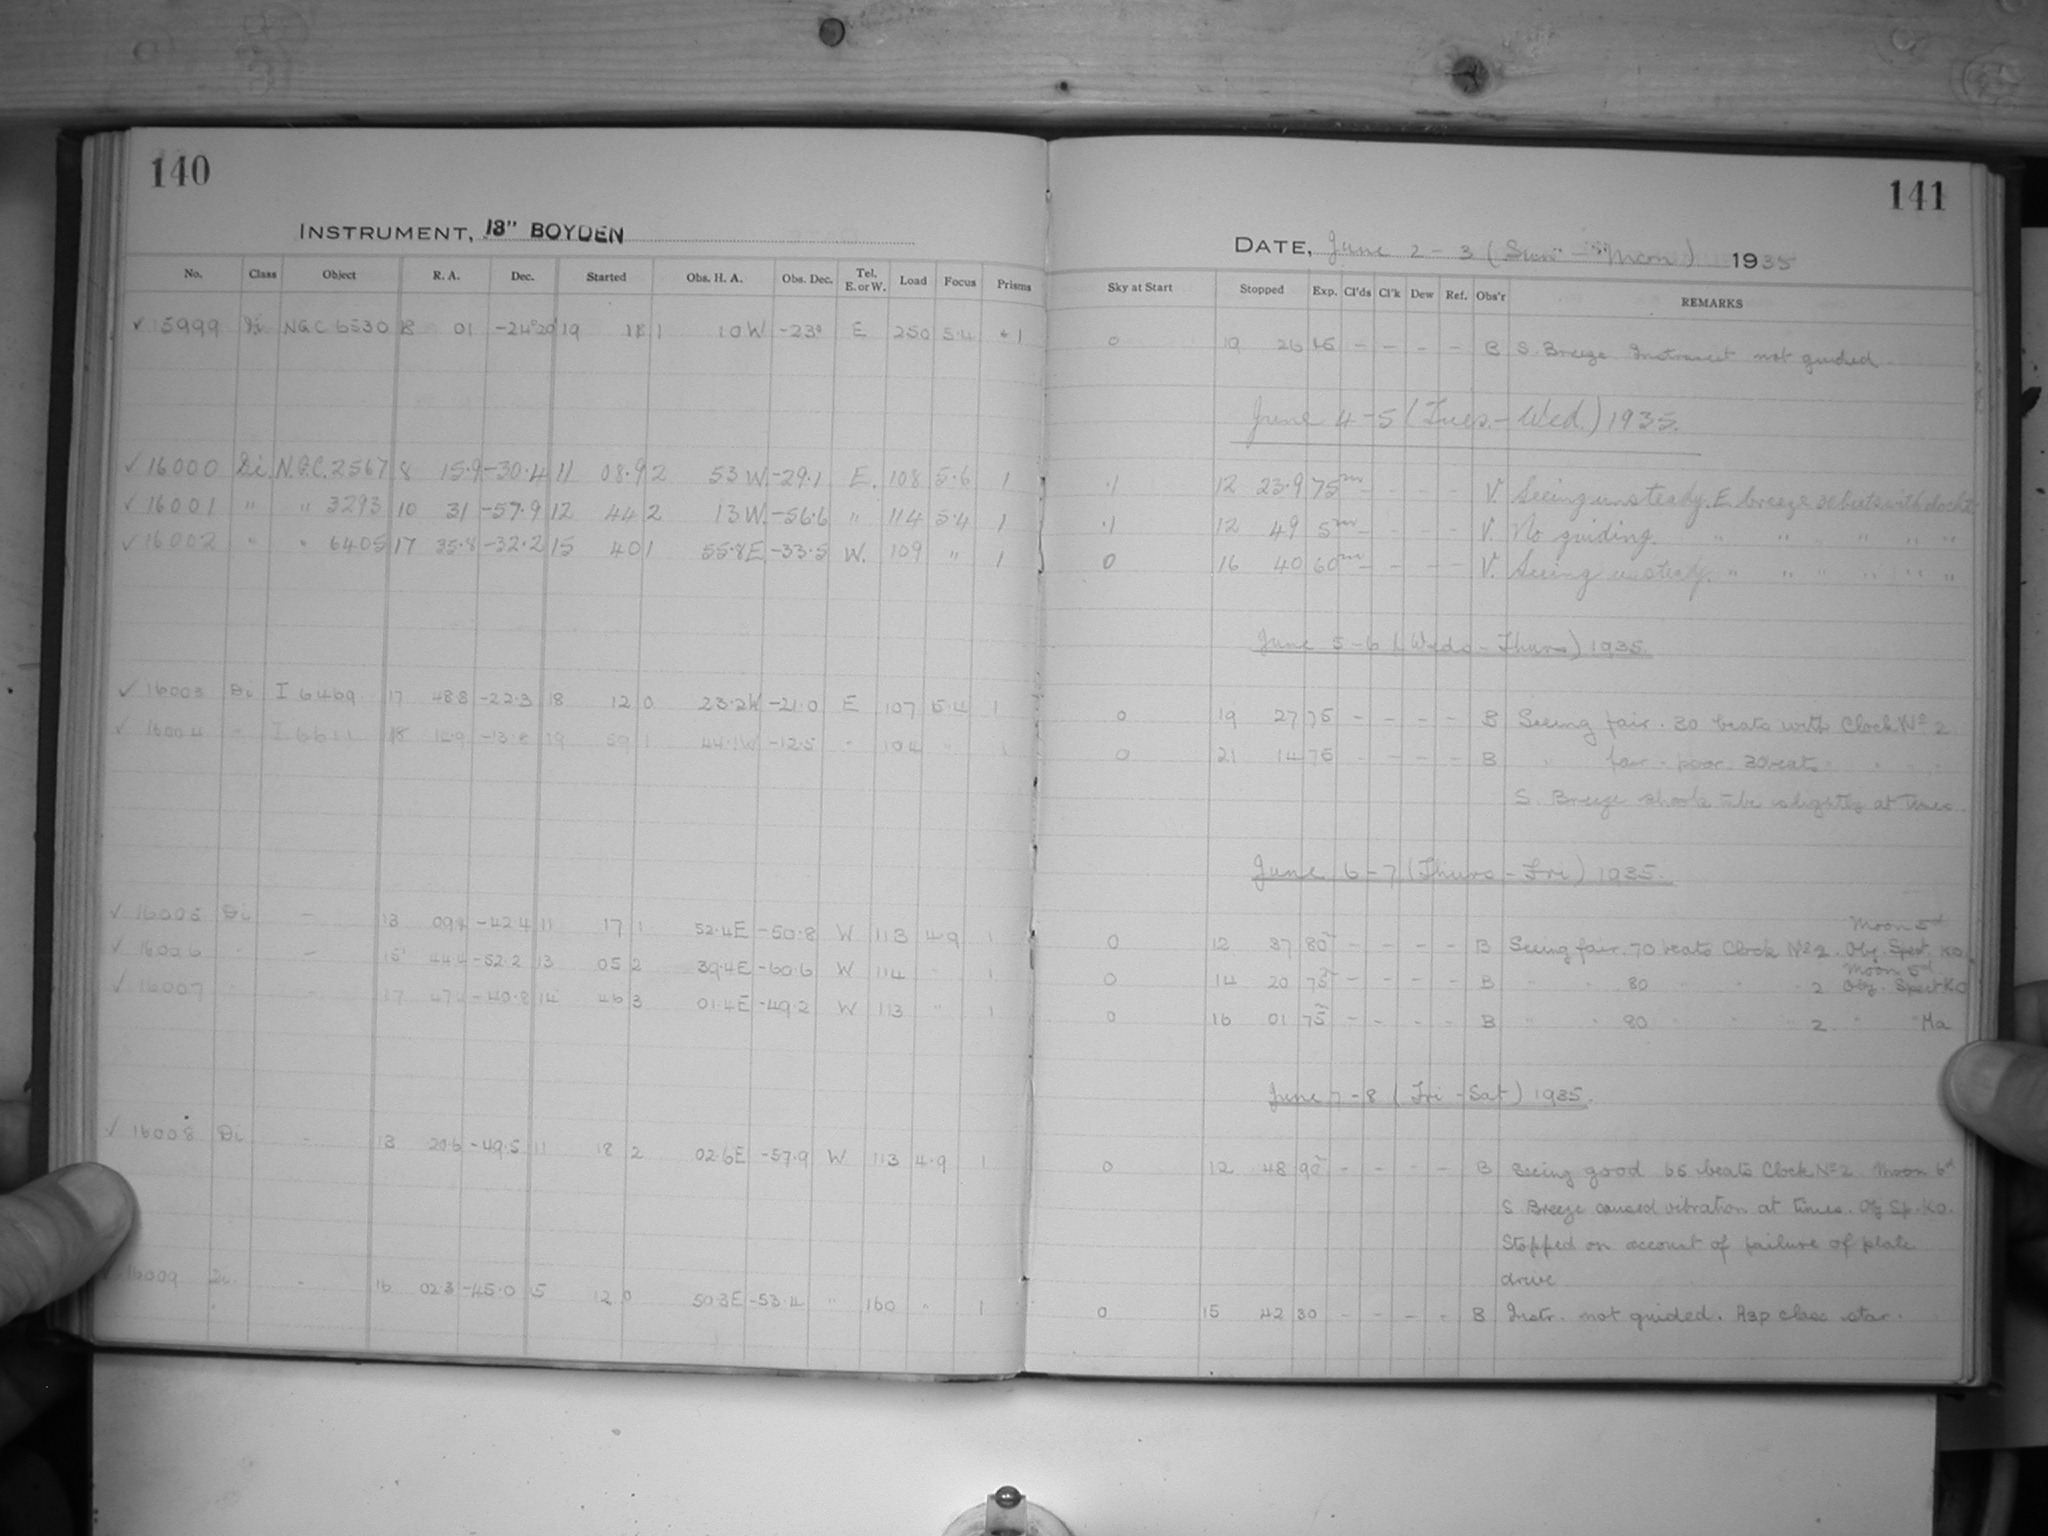 140
INSTRUMENT, 13" BOYDEN
No. Class Object R. A. Dec. Started Obs. H. A. Obs. Dec. Tel. E. or W. Load Focus Prisms
✓ 15999 Di NGC 6530 18 01 -24°20' 19 11 1 10 W -23° E 250 5.4 1
✓ 16000 Di. N.G.C. 2567 8 15.9 -30.4 11 08.9 2 53 W. -29.1 E. 108 5.6 1
✓ 16001 " " 3293 10 31 -57.9 12 44 2 13 W. -56.6 " 114 5.4 1
✓ 16002 " " 6405 17 35.8 -32.2 15 40 1 55.8 E. -33.5 W. 109 " 1
✓ 16003 Di I 6469 17 48.8 -22.3 18 12 0 23.2W -21.0 E 107 5.4 1
✓ 16004 " I 6611 18 -13.8 19 59 1 44.1W -12.5 " 104 " 1
✓ 16005 Di - 13 09.4 -42.4 11 17 1 52.4E -50.8 W 113 4.9 1
✓ 16006 " - 15 44.4 -52.2 13 05 2 39.4E -60.6 W 114 " 1
✓ 16007 " - 17 47.4 -40.8 14 46 3 01.4E -49.2 W 113 " 1
✓ 16008 Di - 13 20.6 -49.5 11 18 2 02.6E -57.9 W 113 4.9 1
✓ 16009 Di - 16 02.3 -45.0 15 12 0 50.3E -53.4 " 160 " 1
141
DATE, June 2 - 3 (Sun - Mon) 1935
Sky at Start Stopped Exp. Cl'ds Cl'k Dew Ref. Obs'r REMARKS
0 19 26 15 - - - - B S. Breeze Instrument not guided.
June 4-5 (Tues. - Wed.) 1935.
.1 12 23.9 75m - - - - V. Seeing unsteady. E. breeze 30 beats with clock
.1 12 49 5m - - - - V. No guiding. " " " " " "
0 16 40 60m - - - - V. Seeing unsteady. " " " " " "
June 5-6 (Weds - Thurs) 1935.
0 19 27 75 - - - - B Seeing fair. 30 beats with Clock No 2
0 21 14 75 - - - - B " fair - poor. 30 beats " " "
S. Breeze shook tube slightly at times.
June 6-7 (Thurs - Fri) 1935.
Moon 5d
0 12 37 80 - - - - B Seeing fair. 70 beats Clock No 2. Obj. Spect. K0.
Moon 5d
0 14 20 75 - - - - B " " 80 " " " 2 Obj. Spect K0
0 16 01 75 - - - - B " " 80 " " " 2. " " Ma
June 7-8 (Fri - Sat) 1935.
0 12 48 90 - - - - B Seeing good 65 beats Clock No 2 Moon 6d
S Breeze caused vibration at times. Obj Sp. K0.
Stopped on account of failure of plate
drive
0 15 42 30 - - - - B Instr. not guided. A3p class star.